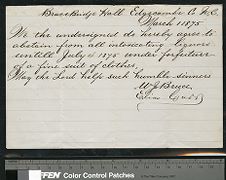 Bracebridge Hall Edgecombe Co N.C.
March 1 1875
We the undersigned do hereby agree to
abstain from all intoxicating liquors
untill July 1st 1875 under forfeiture
of a fine suit of clothes,
May the Lord help such humble sinners
W J Bruce,
FEN Color Control Patches